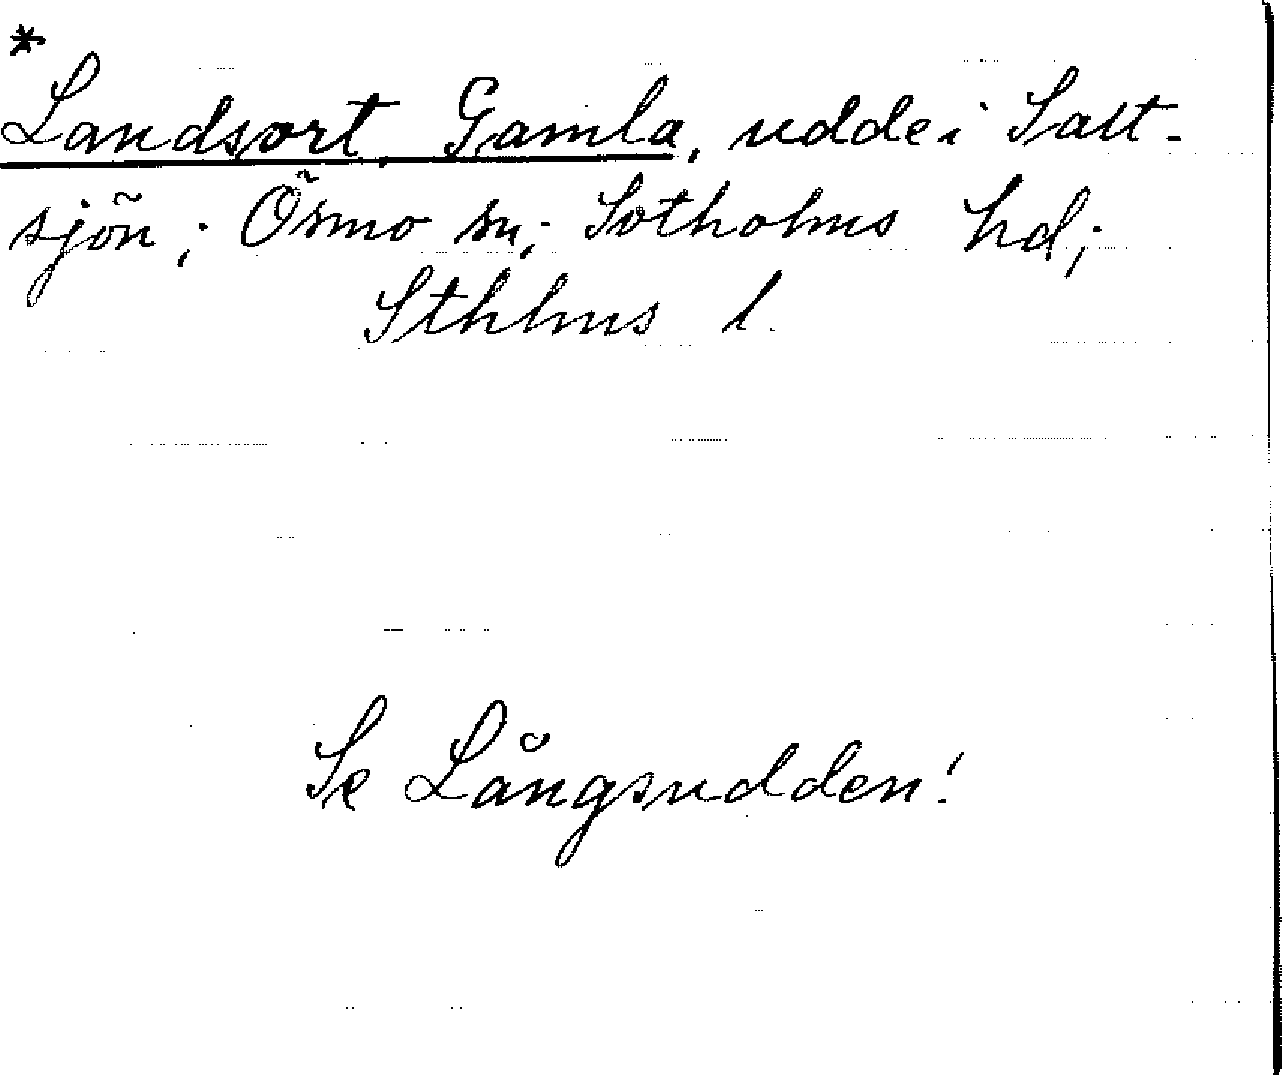 *
Landsort, Gamla, udde i Salt-
sjön; Ösmo sn; Sotholms hd;
Sthlms l.
Se Långsudden!